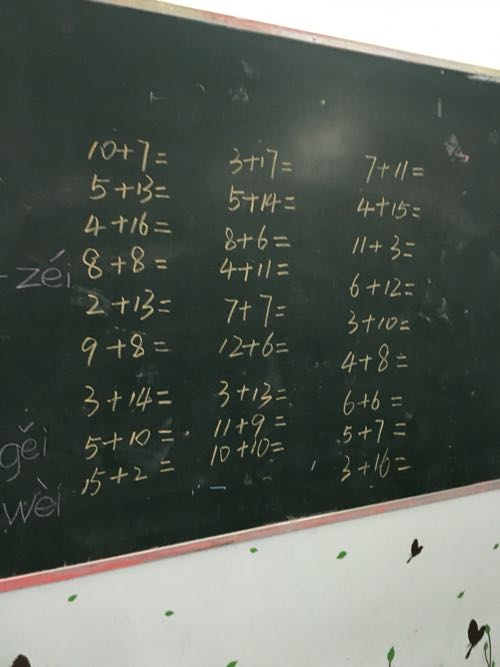 10+7= 3+17= 7+11=
5+13= 5+14= 4+15=
4+16= 8+6= 11+3=
8+8= 4+11= 6+12=
zéi
2+13= 7+7= 3+10=
9+8= 12+6= 4+8=
3+14= 3+13= 6+6=
5+10= 11+9= 5+7=
gěi
15+2= 10+10= 3+16=
wèi